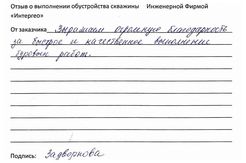 Отзыв о выполнении обустройства скважины Инженерной Фирмой
«Интергео»
От заказчика Выражаем огромную благодарность
за быстрое и качественное выполнение
буровых работ.
Подпись: Задворнова